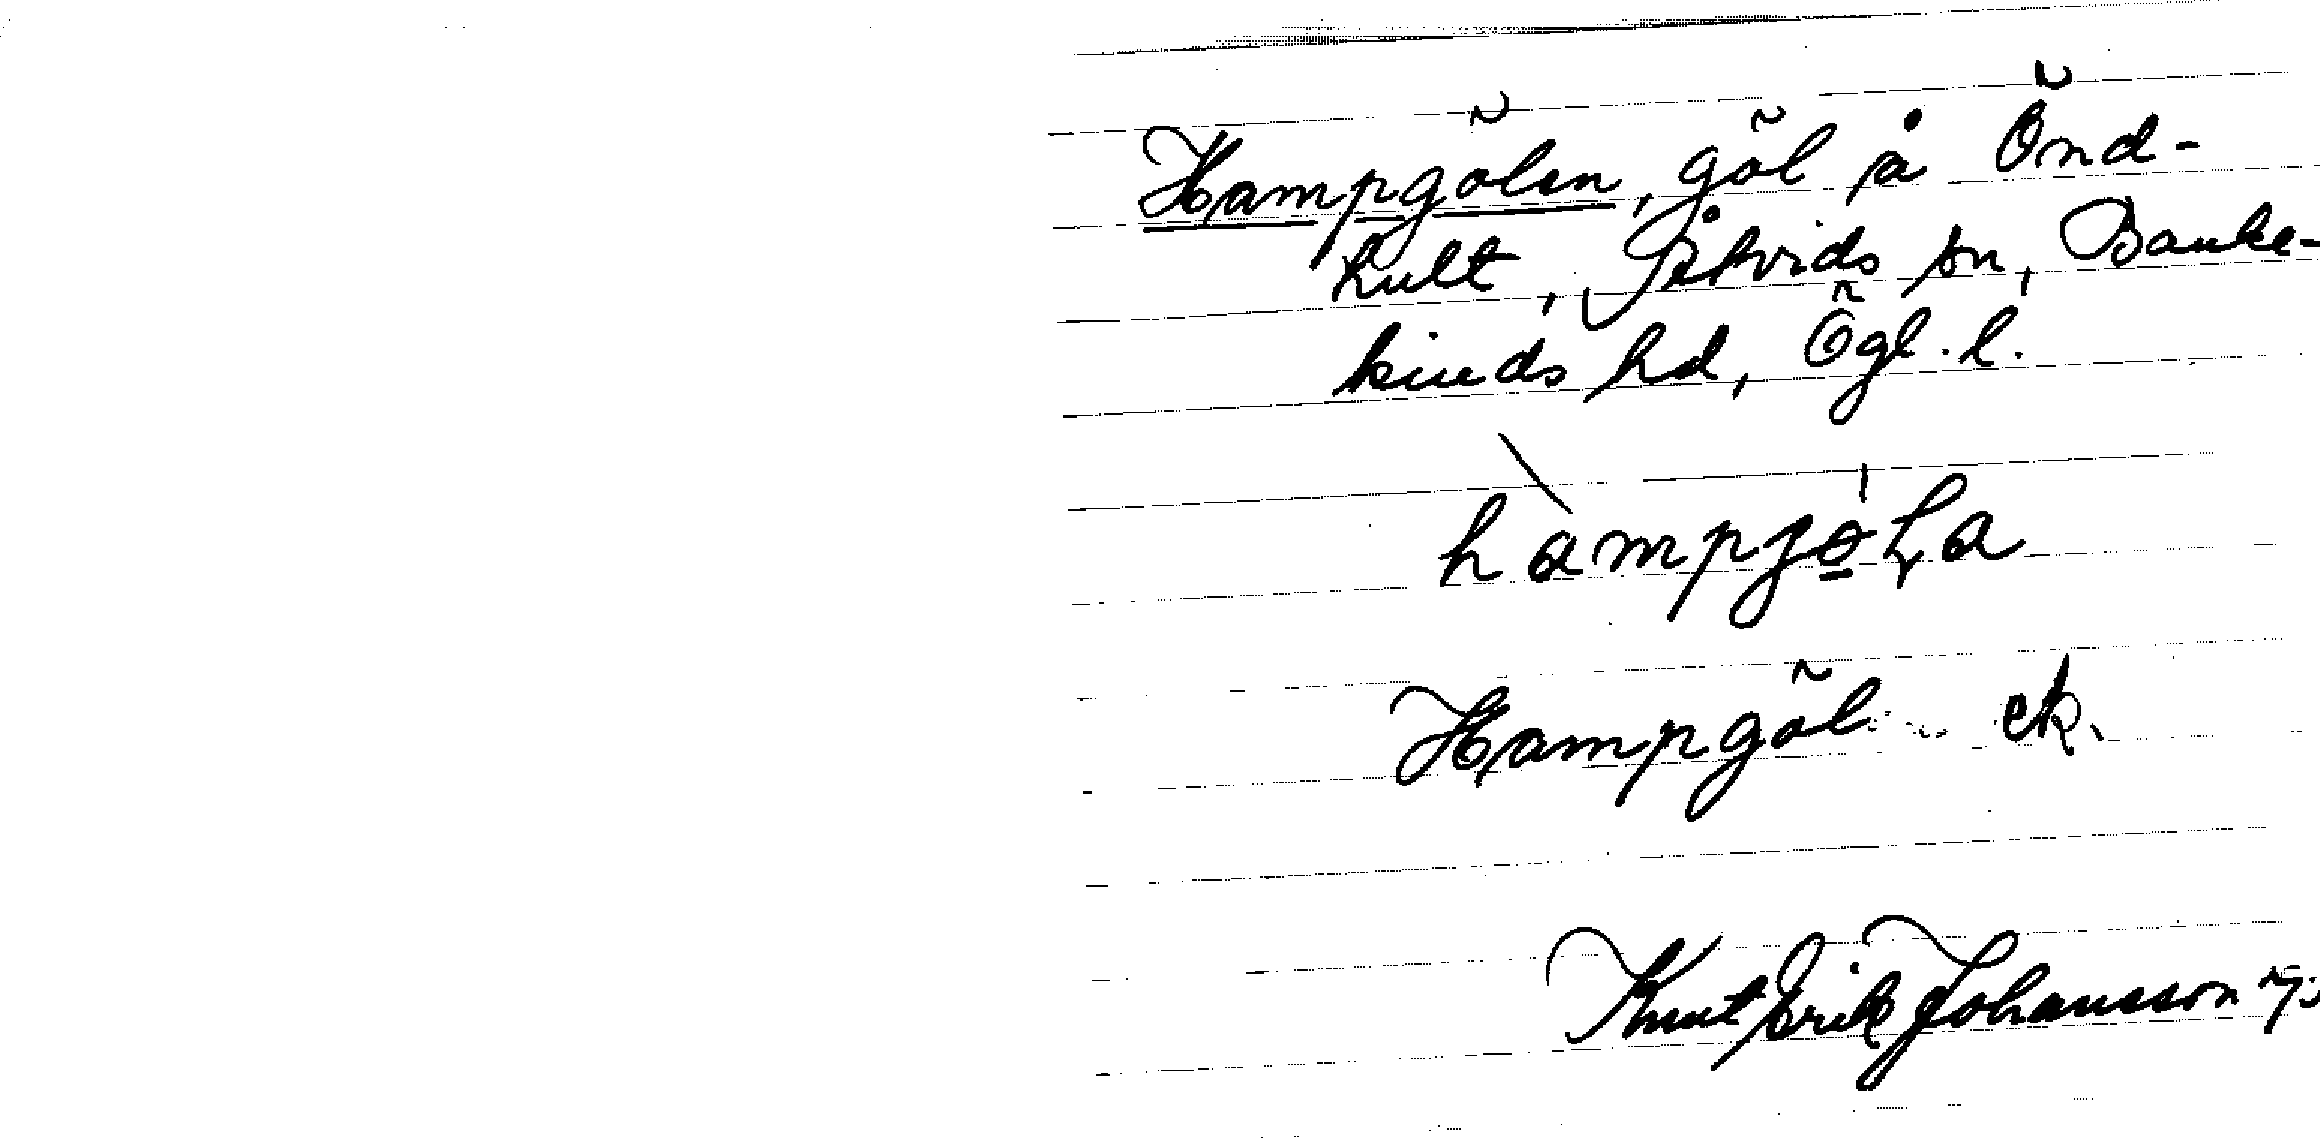 Hampgölen, göl å Önd-
kult, Åtvids sn, Banke-
kinds hd, Ögl. l.
hampgöla
Hampgöl ek.
Knut Erik Johansson